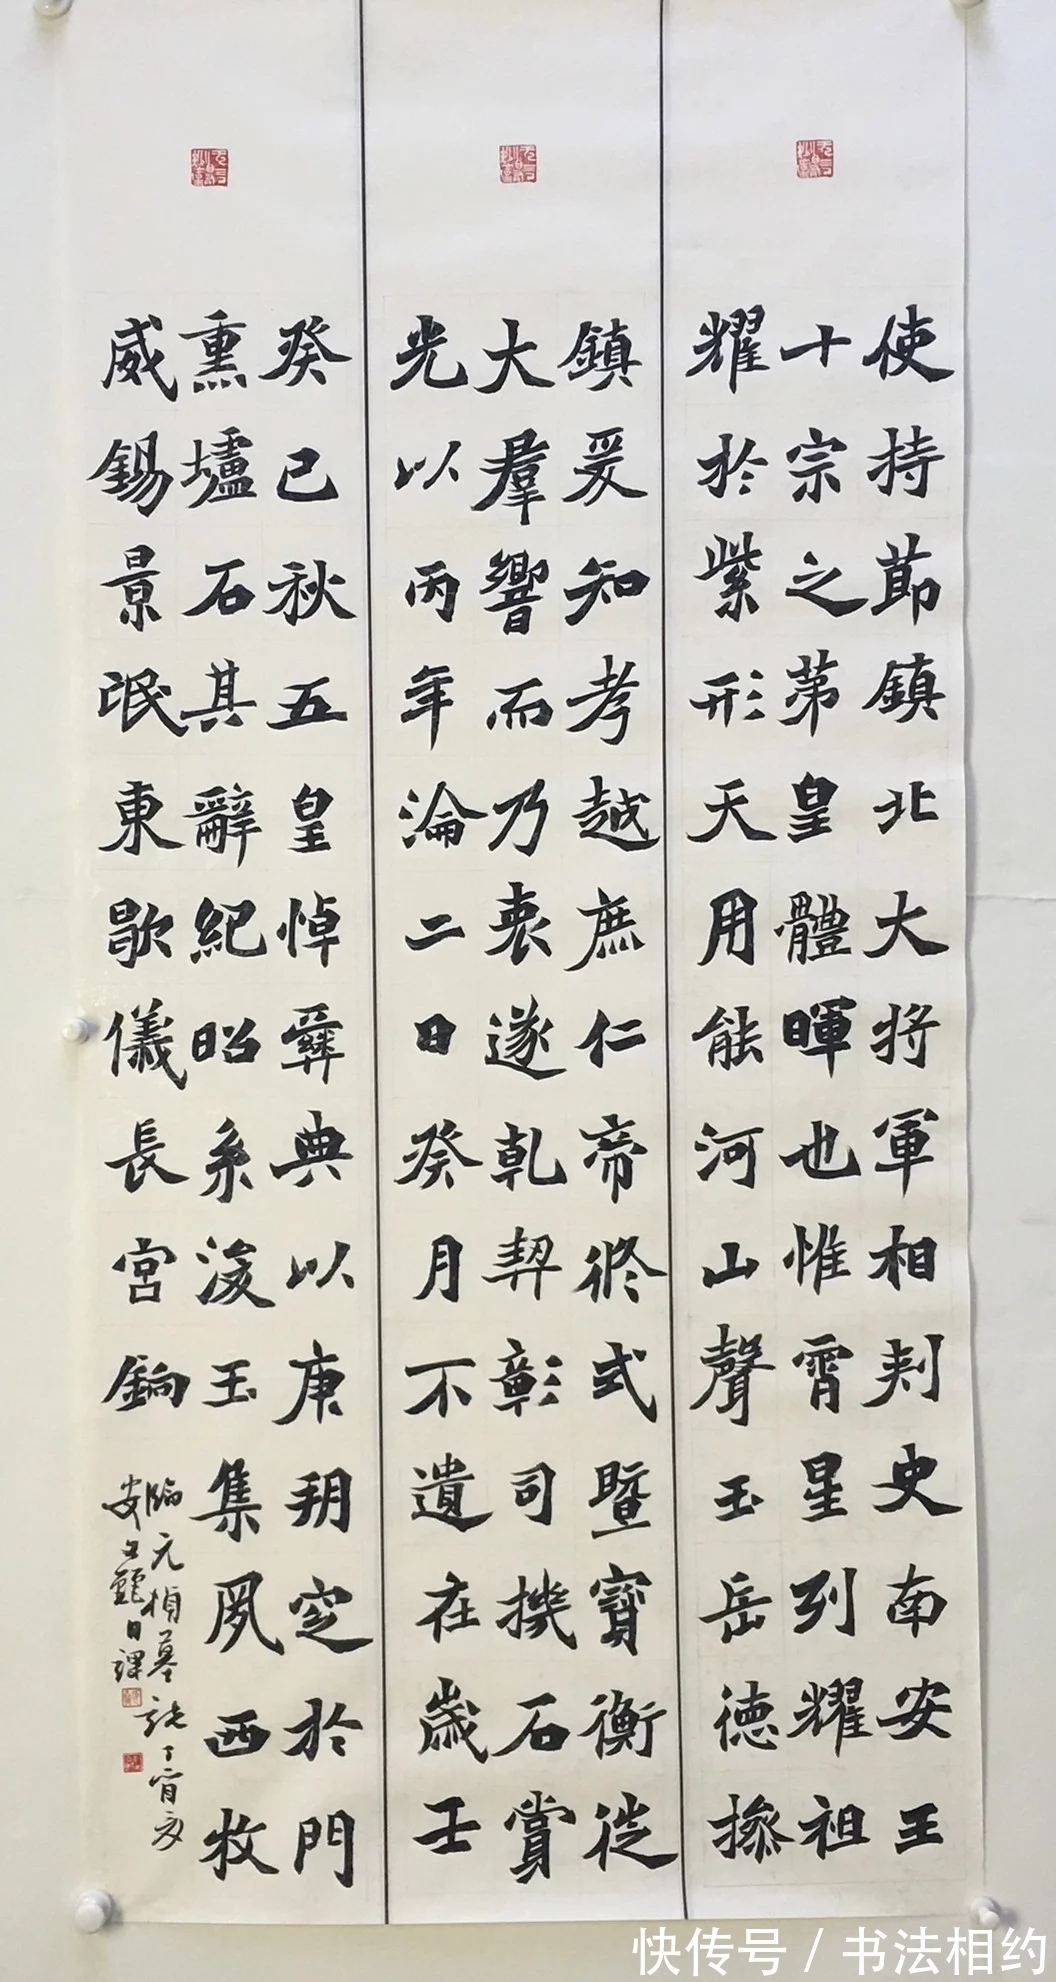 使持莭鎮北大将軍相刾史南安王
十宗之苐皇體暉也惟霄星列耀祖
耀於紫形天用能河山聲玉岳德摻
鎮爰知孝越庶仁帝終式暨寳衡徙
大羣響而乃喪遂乾契彰司機石賞
光以丙年淪二日癸月不遺在歲壬
癸巳秋五皇悼彝典以庚朔窆於門
熏壚石其辭紀昭糸浚玉集夙西牧
威錫景氓東歇儀長宮銷
臨元楨墓誌丁酉夏
安文龍日課
快传号 / 书法相约